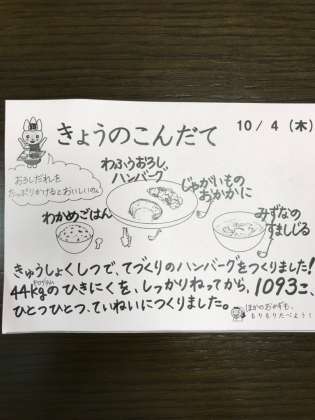 きょうのこんだて
10/4(木)
おろしだれを
たっぷりかけるとおいしいのん
わふうおろし
ハンバーグ
じゃがいもの
おかかに
わかめごはん
みずなの
すましじる
きゅうしょくしつで、てづくりのハンバーグをつくりました!
44kgのひきにくを、しっかりねってから、1093こ、
ひとつひとつ、ていねいにつくりました。
ほかのおかずも、
もりもりたべよう!